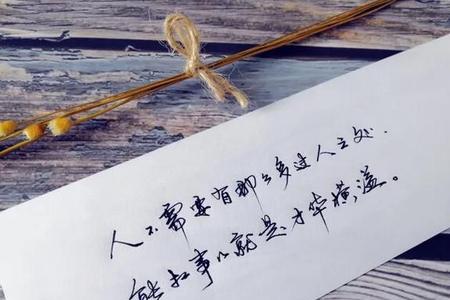 人不需要有那么多过人之处.
能扛事儿就是才华横溢。